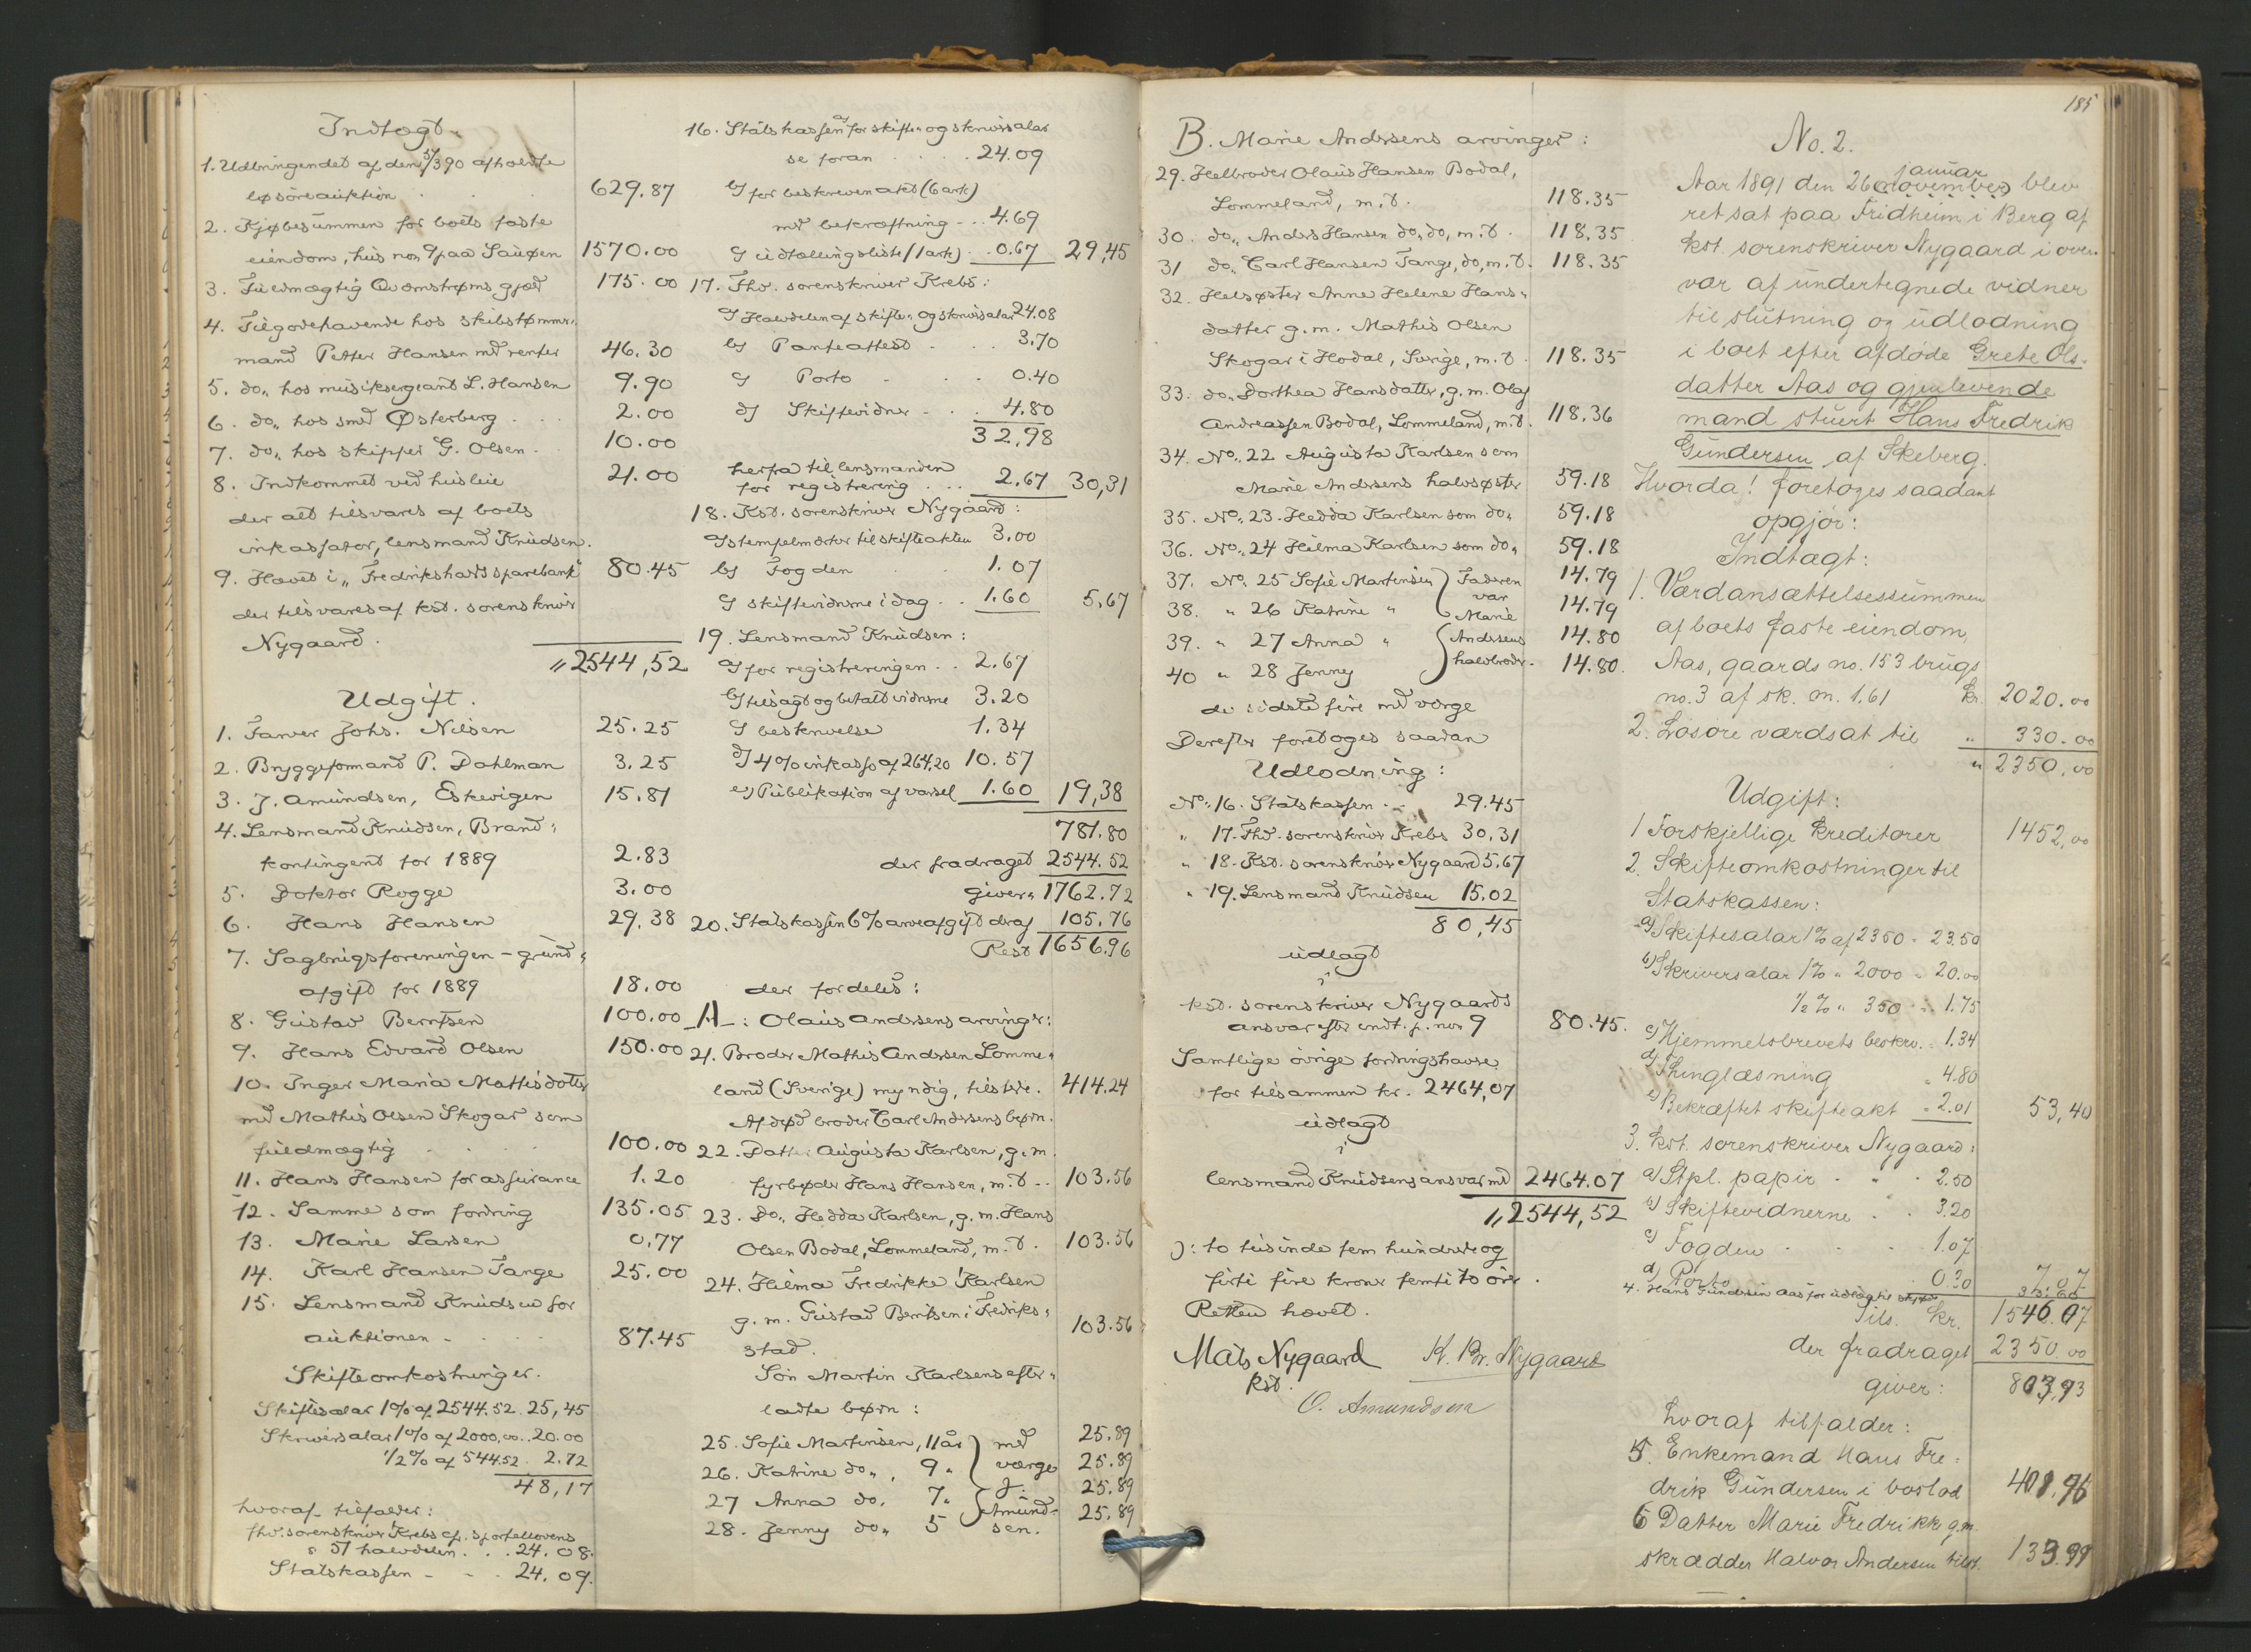 Indtægt.
1. Udbringendet af den 5/3 90 afholdte
løsøreauktion . . . 629.87
2. Kjøbesummen for boets faste
eiendom, hus no. 9 paa Sauøen 1570.00
3. Fuldmægtig Qvamstrøms gjæld 175.00
4. Tilgodehavende hos skibstømmer-
mand Petter Hansen md renter 46.30
5. do. hos musiksergeant L. Hansen 9.90
6. do. hos smed Østerberg . . . 2.00
7. do. hos skipper G. Olsen . 10.00
8. Indkommet ved husleie 21.00
der alt tilsvares af boets
inkassator, lensmand Knudsen.
9. Hævet i "Fredrikshalds sparebank" 80.45
der tilsvares af kst. sorenskriver
Nygaard.
" 2544,52
Udgift.
1. Farver Johs. Nilsen 25.25
2. Bryggeformand P. Dahlman 3.25
3. J. Amundsen, Eskevigen 15.81
4. Lensmand Knudsen, Brand-
kontingent for 1889 2.83
5. Doktor Rogge 3.00
6. Hans Hansen 29.38
7. Sagbrugsforeningen - grund-
afgift for 1889 18.00
8. Gustav Berntsen 100.00
9. Hans Edvard Olsen 150.00
10. Inger Maria Mathisdatter
md Mathis Olsen Skogar som
fuldmægtig . . . 100.00
11. Hans Hansen for assurance 1.20
12. Samme som fordring 135.05
13. Marie Larsen 0.77
14. Karl Hansen Tange 25.00
15. Lensmand Knudsen for
auktionen - . . . 87.45
Skifteomkostninger.
Skiftesalar 1% af 2544.52. 25,45
Skriversalar 1% af 2000,00.. 20.00
1/2% af 544.52 . 2.72
48,17
hvoraf tilfalder:
fhv. sorenskriver Krebs efter sportellovens
§ 51 halvdelen . . . 24.08.
Statskassen - - . 24.09.
16. Statskassen for skifte- og skriversalar
se foran . . . . 24.09
b) for beskreven akt (6 ark)
md bekræftning - . . 4.69
c) udtællingsliste (1 ark) . . 0.67 29,45
17. Fhv. sorenskriver Krebs:
a) Halvdelen af skifte- og skriversalar 24.08
b) Panteattest . . . 3.70
c) Porto - . . . 0.40
d) Skiftevidner - . . 4.80
32,98
herfra til lensmanden
for registrering . . . 2.67 30,31
18. Kst. sorenskriver Nygaard:
a) stempelmærker til skifteakten 3.00
b) Fogden . . . 1.07
c) skiftevidnerne i dag . . 1.60 5,67
19. Lensmand Knudsen:
a) for registreringen . . 2.67
b) tilsagt og betalt vidnerne 3.20
c) beskrivelse 1.34
d) 4% inkasso af 264.20 10.57
e) Publikation af varsel 1.60 19,38
781.80
der fradraget 2544.52
giver " 1762.72
20. Statskassen 6% arveafgift deraf 105.76
Rest 1656.96
der fordeles:
A: Olaus Andersens arvinger:
21. Broder Mathis Andersen Lomme-
land (Sverige) myndig, tilstede. 414.24
Afdød broder Carl Andersens børn.
22. Datter Augusta Karlsen, g. m.
fyrbøder Hans Hansen, m. t. . . 103.56
23. Do. Hedda Karlsen, g. m. Hans
Olsen Bodal, Lommeland, m. t. 103.56
24. Hilma Fredrikke Karlsen
g. m. Gustav Berntsen i Fredriks-
stad. 103.56
Søn Martin Karlsens efter-
ladte børn:
25. Sofie Martinsen, 11 år } md 25.89
26. Katrine do., 9 " værge 25.89
27 Anna do. 7 " J. 25.89
28. Jenny do. 5 Amund-sen. 25.89
B. Marie Andersens arvinger:
29. Helbroder Olaus Hansen Bodal,
Lommeland, m. t. 118.35
30. do. Anders Hansen do. do, m. t. 118.35
31 do. Carl Hansen Tange, do, m. t. 118.35
32. Helsøster Anne Helene Hans-
datter g. m. Mathis Olsen
Skogar i Hodal, Sverige, m. t. 118.35
33. do. Dorthea Hansdatter, g. m. Olaf
Andreassen Bodal, Lommeland, m. t. 118.36
34. No. 22 Augusta Karlsen som
Marie Andersens halvsøster 59.18
35. No. 23. Hedda Karlsen som do. 59.18
36. No. 24 Hilma Karlsen som do. 59.18
37. No. 25 Sofie Martinsen } Faderen 14.79
38. " 26 Katrine " var Marie 14.79
39. " 27 Anna " Andersens 14.80
40 " 28 Jenny halvbroder. 14.80.
de sidste fire md værge
Derefter foretoges saadan
Udlodning:
No. 16. Statskassen . . 29.45
" 17. Fhv. sorenskriver Krebs 30.31
" 18. Kst. sorenskriver Nygaard 5.67
" 19. Lensmand Knudsen 15.02
80,45
udlagt
i
kst. sorenskriver Nygaards
ansvar efter indt. p. no. 9 80.45.
Samtlige øvrige fordringshavere
for tilsammen kr. 2464,07
udlagt
i
lensmand Knudsens ansvar md 2464.07
" 2544,52
): to tusinde fem hundrede og
firti fire kroner femti to øre.
Retten hævet.
Mats Nygaard K. Br. Nygaard
kst.
O. Amundsen
185
No. 2.
januar
Aar 1891 den 26 (november) blev
ret sat paa Fridheim i Berg af
kst. sorenskriver Nygaard i over-
vær af undertegnede vidner
til slutning og udlodning
i boet efter afdøde Grete Ols-
datter Aas og gjenlevende
mand stuert Hans Fredrik
Gundersen af Skeberg.
Hvorda! foretoges saadant
opgjør:
Indtægt:
1. Værdansættelsessummen
af boets faste eiendom,
Aas, gaards no. 153 brugs
no. 3 af sk. m. 1.61 kr. 2020.00
2. Løsøre værdsat til " 330.00
" 2350,00
Udgift:
1 Forskjellige kreditorer 1452,00
2. Skifteomkostninger til
Statskassen:
a) Skiftesalar 1% af 2350 - 23.50
b) Skriversalar 1% " 2000 - 20.00
1/2% " 350 - 1.75
c) Hjemmelsbrevets beskrv. - 1.34
d) Thinglæsning " 4.80
e) Bekræftet skifteakt - 2.01 53,40
3. kst. sorenskriver Nygaard:
a) Stpl. papir . " . 2.50
b) Skiftevidnerne . . 3.20
c) Fogden . . . 1.07
d) Porto 0.30 7.07
4. Hans Gundersen Aas for udlagt til
Tils. kr. 1546.07
der fradraget 2350.00
giver: 803,93
hvoraf tilfalder:
5. Enkemand Hans Fre-
drik Gundersen i boslod 401.96
6 Datter Marie Fredrikke g.m.
skrædder Halvor Andersen tilst. 133.99